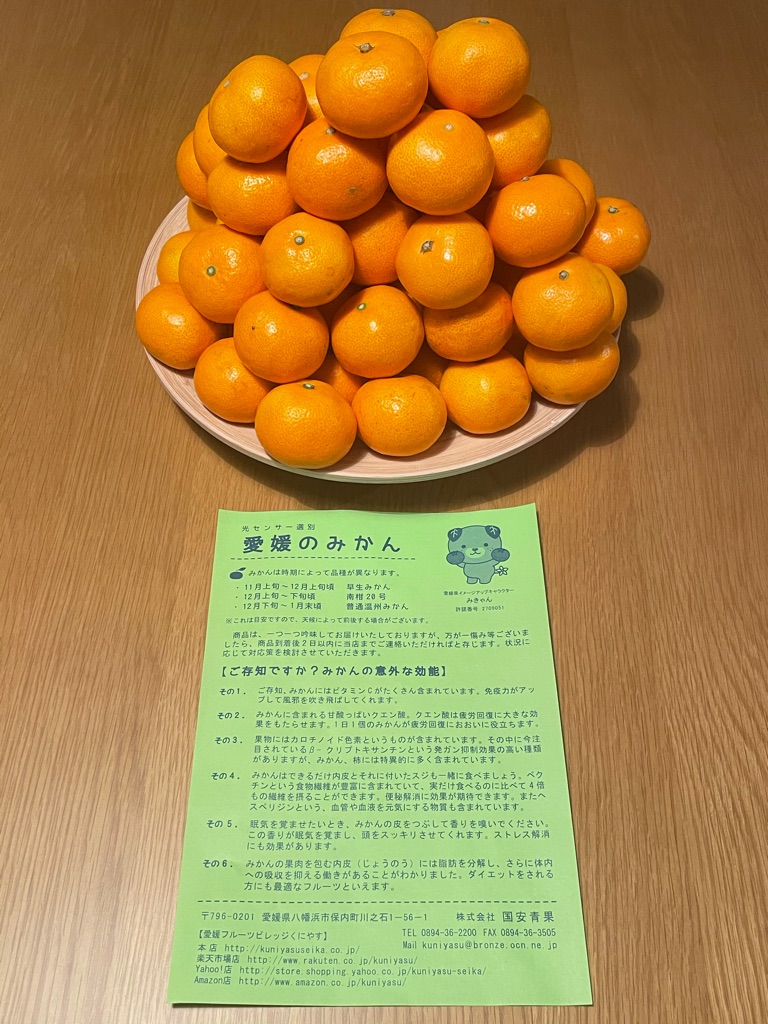 光センサー選別
愛媛のみかん
愛媛県イメージアップキャラクター
みきゃん
許諾番号 2709051
みかんは時期によって品種が異なります。
・11月上旬~12月上旬頃 早生みかん
・12月上旬~下旬頃 南柑20号
・12月下旬~1月末頃 普通温州みかん
※これは目安ですので、天候によって前後する場合がございます。
商品は、一つ一つ吟味してお届けいたしておりますが、万が一傷み等ございま
したら、商品到着後2日以内に当店までご連絡いただければと存じます。状況に
応じて対応策を検討させていただきます。
【ご存知ですか?みかんの意外な効能】
その1. ご存知、みかんにはビタミンCがたくさん含まれています。免疫力がアッ
プして風邪を吹き飛ばしてくれます。
その2. みかんに含まれる甘酸っぱいクエン酸。クエン酸は疲労回復に大きな効
果をもたらせます。1日1個のみかんが疲労回復におおいに役立ちます。
その3. 果物にはカロチノイド色素というものが含まれています。その中に今注
目されているβ-クリプトキサンチンという発ガン抑制効果の高い種類
がありますが、みかん、柿には特異的に多く含まれています。
その4. みかんはできるだけ内皮とそれに付いたスジも一緒に食べましょう。ペク
チンという食物繊維が豊富に含まれていて、実だけ食べるのに比べて4倍
もの繊維を摂ることができます。便秘解消に効果が期待できます。またヘ
スペリジンという、血管や血液を元気にする物質も含まれています。
その5. 眠気を覚ませたいとき、みかんの皮をつぶして香りを嗅いでください。
この香りが眠気を覚まし、頭をスッキリさせてくれます。ストレス解消
にも効果があります。
その6. みかんの果肉を包む内皮(じょうのう)には脂肪を分解し、さらに体内
への吸収を抑える働きがあることがわかりました。ダイエットをされる
方にも最適なフルーツといえます。
〒796-0201 愛媛県八幡浜市保内町川之石1-56-1 株式会社 国安青果
TEL 0894-36-2200 FAX 0894-36-3505
【愛媛フルーツビレッジくにやす】
Mail kuniyasu@bronze.ocn.ne.jp
本店 http://kuniyasuseika.co.jp/
楽天市場店 http://www.rakuten.co.jp/kuniyasu/
Yahoo!店 http://store.shopping.yahoo.co.jp/kuniyasu-seika/
Amazon店 http://www.amazon.co.jp/kuniyasu/